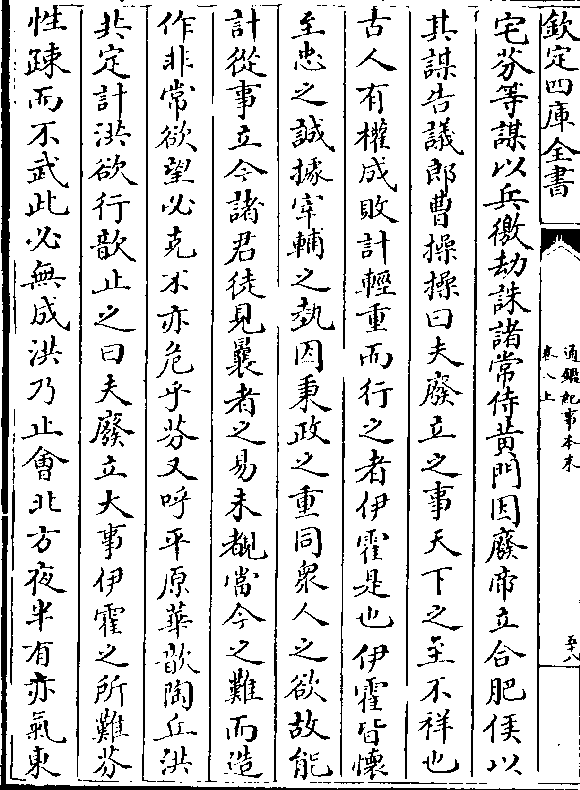 欽定四庫全書
通鑑紀事本末
卷八上
五十八
宅芬等謀以兵徼劫誅諸常侍黄門因廢帝立合肥侯以
其謀告議郎曹操操曰夫廢立之事天下之至不祥也
古人有權成敗計輕重而行之者伊霍是也伊霍皆懷
至忠之誠據宰輔之埶因秉政之重同衆人之欲故能
計從事立今諸君徒見曩者之易未覩當今之難而造
作非常欲望必克不亦危乎芬又呼平原華歆陶丘洪
共定計洪欲行歆止之曰夫廢立大事伊霍之所難芬
性疎而不武此必無成洪乃止會北方夜半有赤氣東